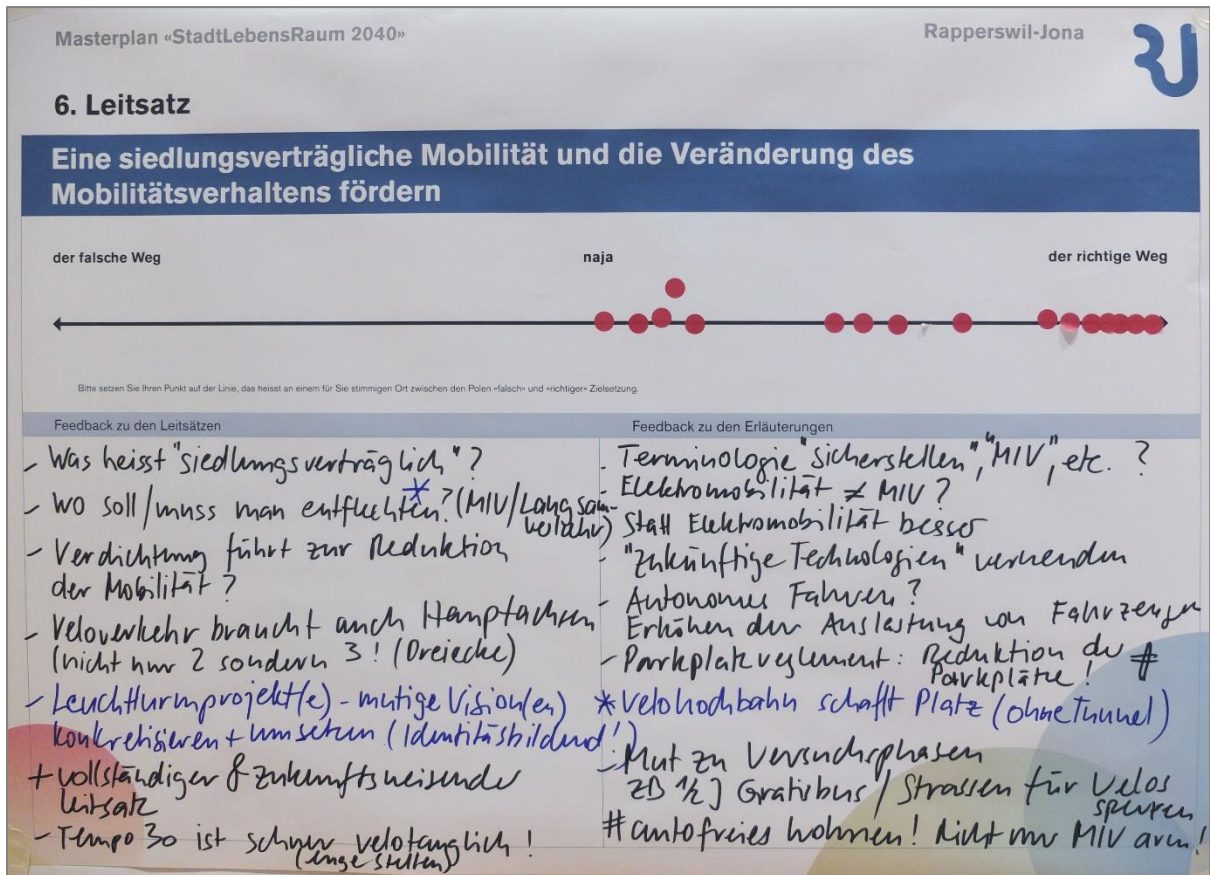 Masterplan «StadtLebensRaum 2040»
Rapperswil-Jona
RJ
6. Leitsatz
Eine siedlungsverträgliche Mobilität und die Veränderung des
Mobilitätsverhaltens fördern
der falsche Weg
naja
der richtige Weg
Bitte setzen Sie Ihren Punkt auf der Linie, das heisst an einem für Sie stimmigen Ort zwischen den Polen «falsch» und «richtiger» Zielsetzung.
Feedback zu den Leitsätzen
- Was heisst "siedlungsverträglich"?
- Wo soll/muss man entflechten*? (MIV/Langsam-
verkehr)
- Verdichtung führt zur Reduktion
der Mobilität?
- Veloverkehr braucht auch Hauptachsen
(nicht nur 2 sondern 3! (Dreiecke)
- Leuchtturmprojekt(e) - mutige Vision(en)
konkretisieren + umsetzen (Identitäsbildend!)
+ vollständiger & zukunftsweisender
Leitsatz
- Tempo 30 ist schwer velotauglich!
(enge Stellen)
Feedback zu den Erläuterungen
- Terminologie "sicherstellen", "MIV", etc. ?
- Elektromobilität ≠ MIV?
Statt Elektromobilität besser
- "zukünftige Technologien" verwenden
- Autonomes Fahren?
Erhöhen der Auslastung von Fahrzeugen
- Parkplatzreglement: Reduktion der #
Parkplätze!
* Velohochbahn schafft Platz (ohne Tunnel)
- Mut zu Versuchsphasen
zB 1/2 J Gratisbus / Strassen für Velos
sperren
# autofreies Wohnen! Nicht nur MIV arm!